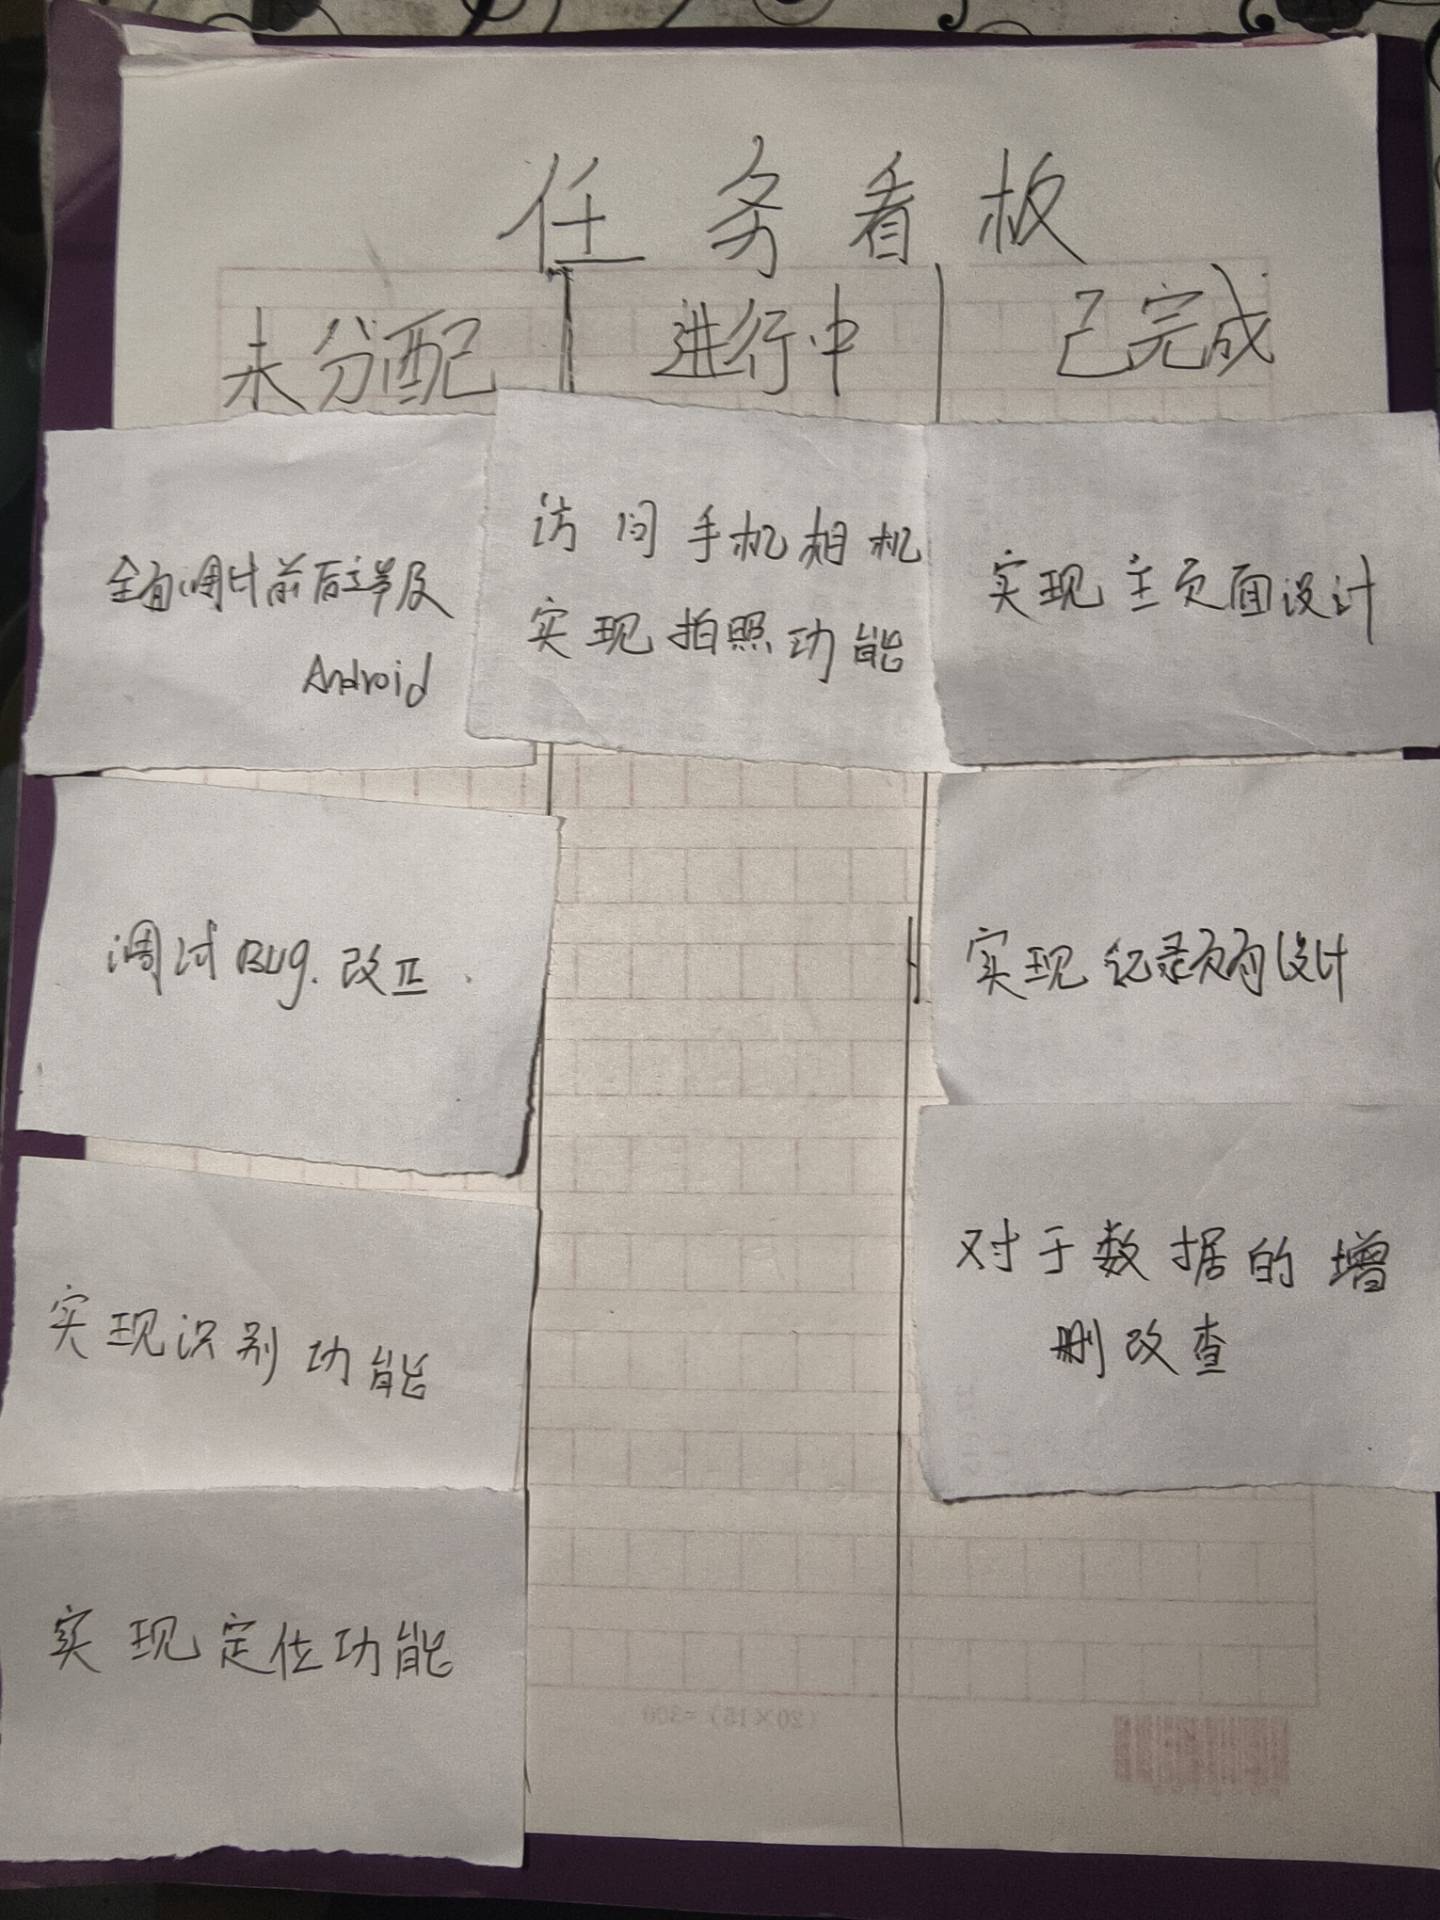 任务看板
未分配 进行中 已完成
全面调试前后端及
Android
访问手机相机
实现拍照功能
实现主页面设计
调试Bug.改正.
实现纪录页面设计
实现识别功能
对于数据的增
删改查
实现定位功能
(20×15)=300